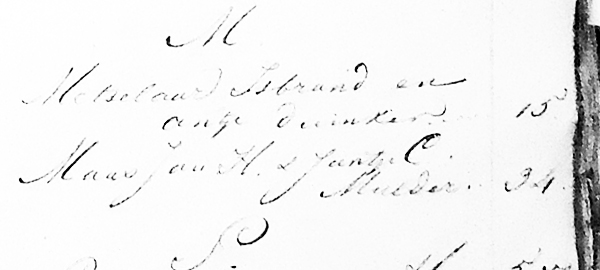 M
Metselaar Isbrand en
antje duinker 15
Maas Jan H. & Jantje C.
Mulder 34.